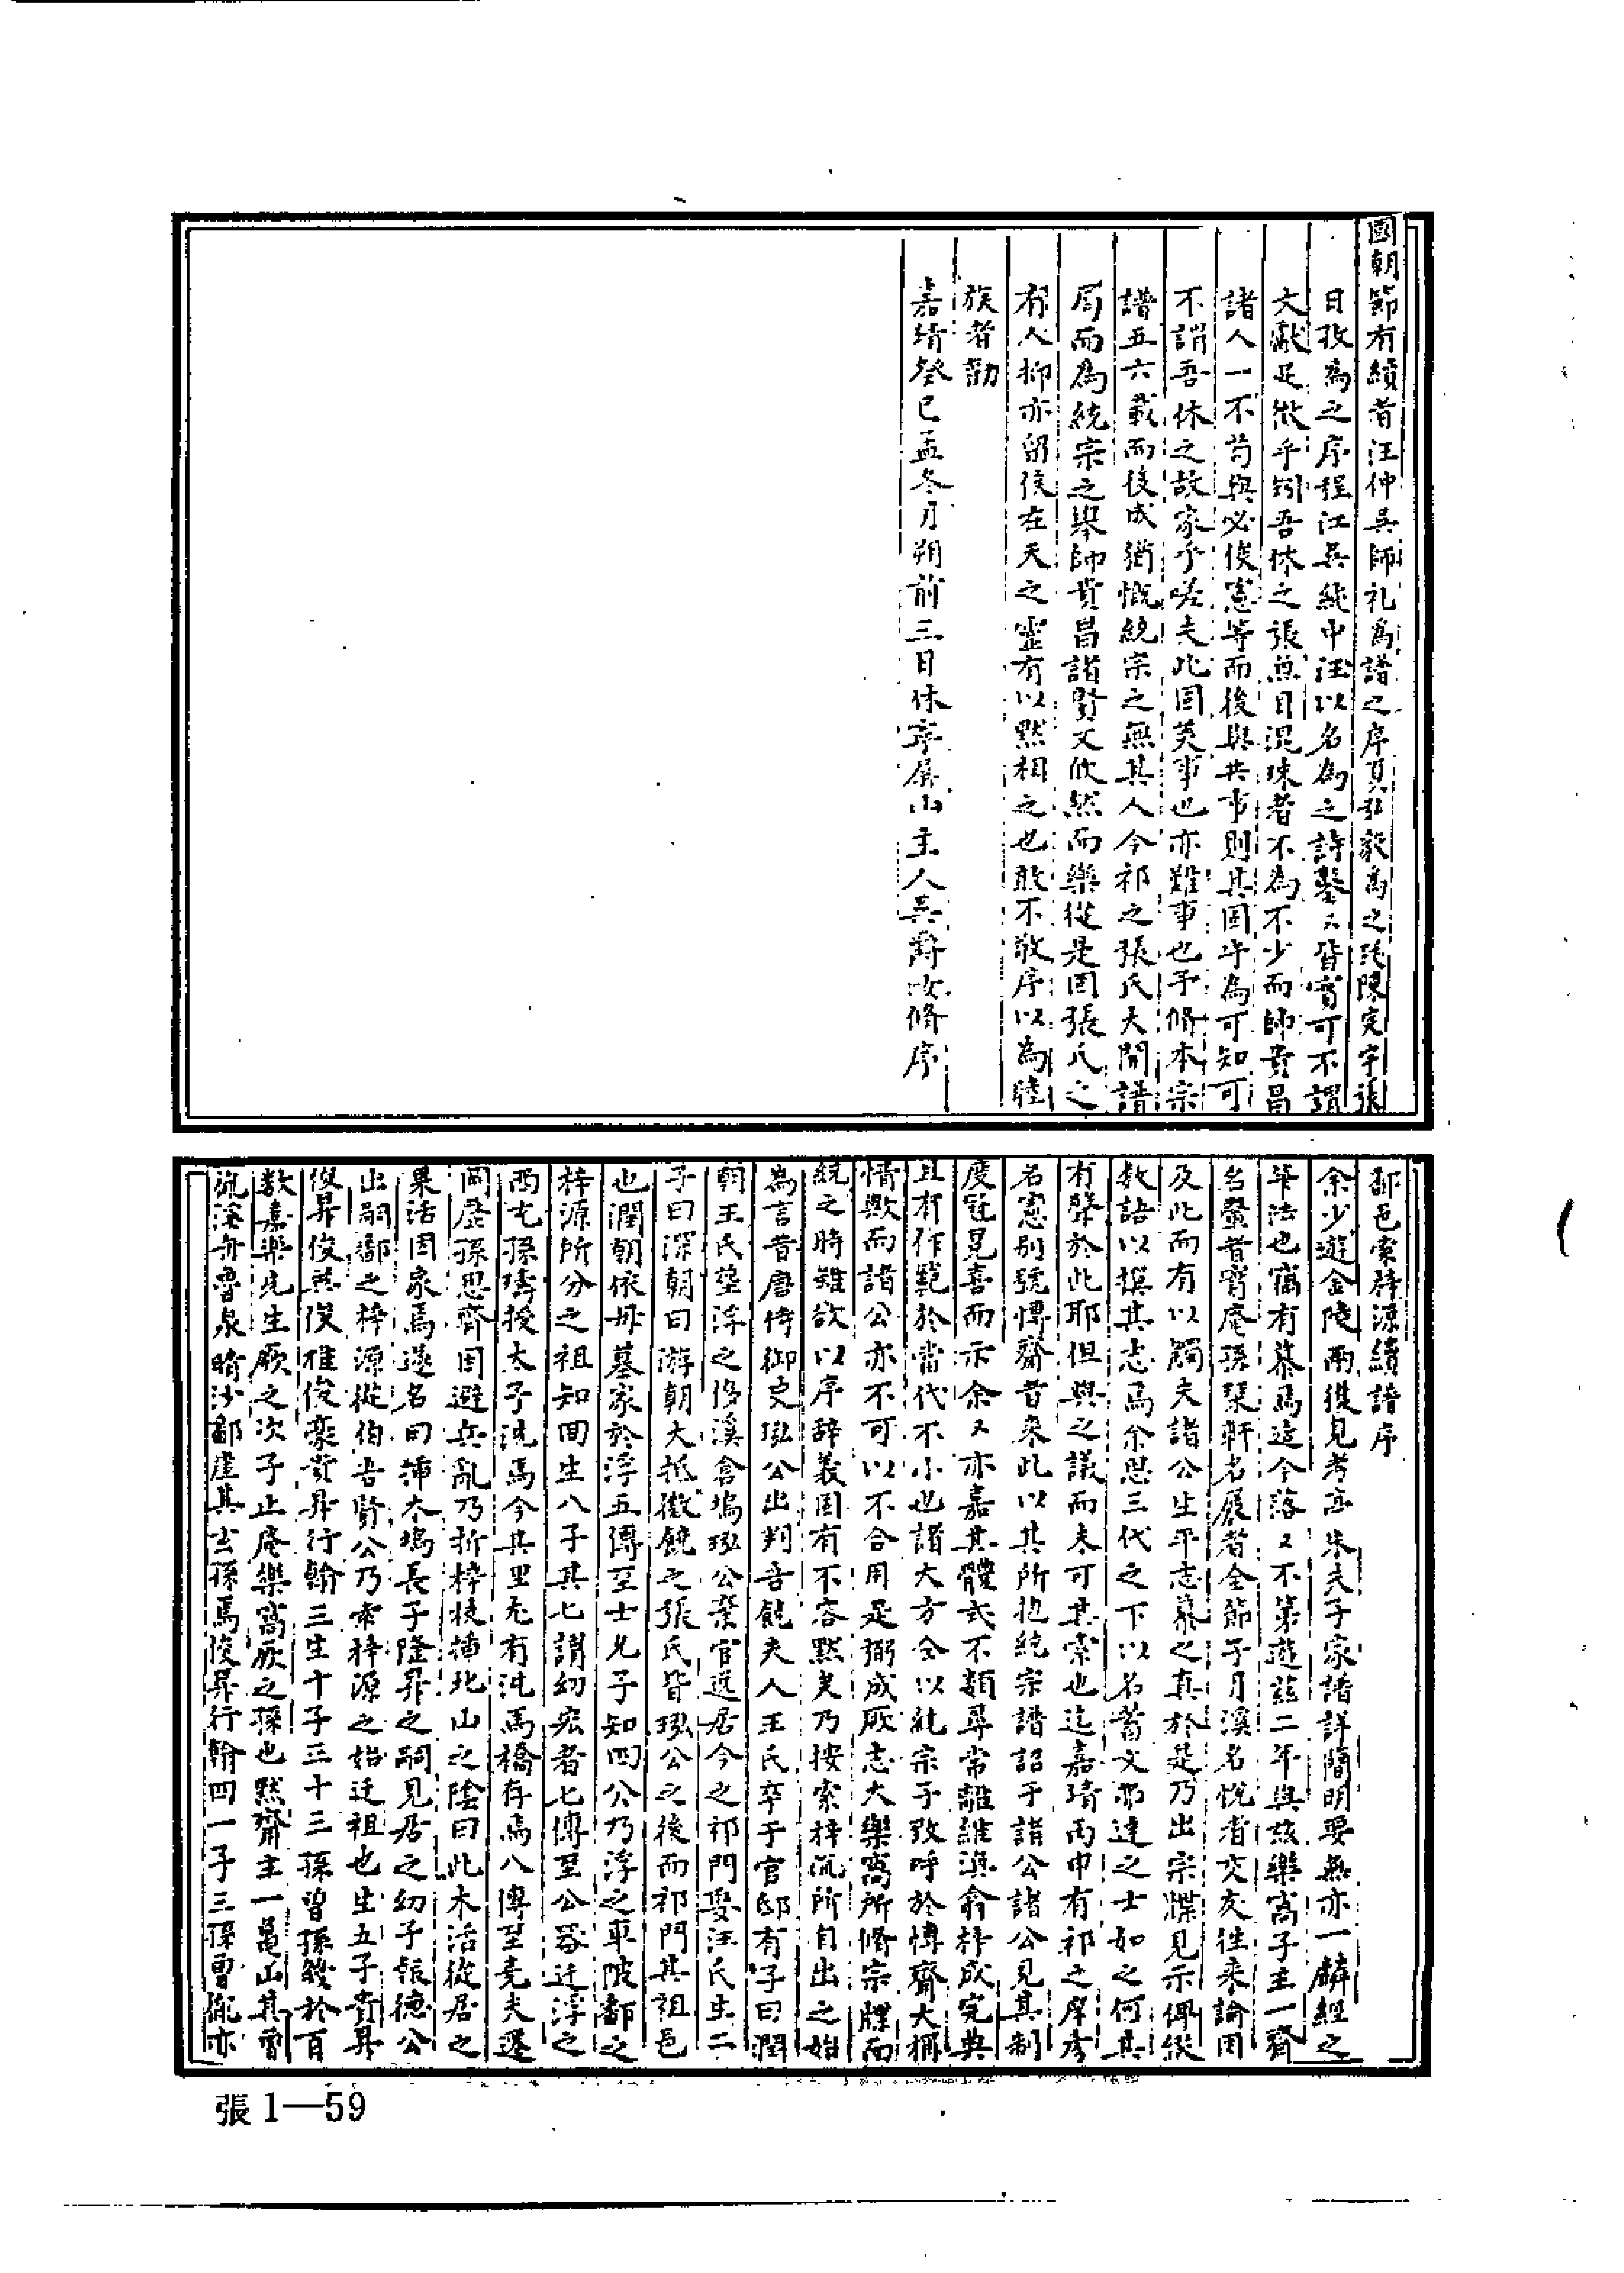 國朝節有續者汪仲吳師礼為譜之序夏弘毅為之跋陳定宇張
日孜為之序程江吳純中汪以名為之詩鑿〻皆實可不謂
文獻足徵乎矧吾休之張魚目混珠者不為不少而師貴昌
諸人一不苟與必俟憲等而後與共事則其固守為可知可
不謂吾休之故家乎嗟夫此固美事也亦難事也予脩本宗
譜五六載而後成猶慨統宗之無其人今祁之張氏大開譜
局而為統宗之舉師貴昌諸賢又攸然而樂從是固張氏之
有人抑亦留侯在天之靈有以默相之也敢不敬序以為睦
族者勸
嘉靖癸巳孟冬月朔前三日休寧屏山主人吳爵汝脩序
鄱邑索梓源續譜序
余少遊金陵兩獲見考亭朱夫子家譜詳簡明要無亦一麟經之
筆法也竊有慕焉迨今落〻不第遊茲二年與玆樂窩子主一齋
名鰲者宵庵孫琹軒名展者全節子月溪名悅者交友往來論因
及此而有以觸夫諸公生平志慕之真於是乃出宗牒見示俾綴
数語以撰其志焉余思三代之下以名蓄文鄀達之士如之何其
有聲於此耶但與之議而未可其索也迄嘉靖丙申有祁之庠彥
名憲別號愽齋者來此以其所抱統宗譜詔于諸公諸公見其制
度冠冕喜而示余〻亦嘉其體式不類尋常離維淇俞梓敃完典
且有作範於當代不小也諸大方僉以統宗予孜呼於愽齋大稱
情歟而諸公亦不可以不合用是弼成厥志大樂窩所脩宗牒而
統之時雖欲以序辞義固有不容默矣乃按索梓㳅所自出之始
為言昔唐侍御史㺬公出判吾饒夫人王氏卒于官邸有子曰潤
朝王氏塟浮之侈溪倉塢㺬公棄官迯居今之祁門娶汪氏生二
子曰深朝曰游朝大抵徽饒之張氏皆㺬公之後而祁門其祖邑
也潤朝依毋墓家於浮五傳至士允子知四公乃浮之車陂鄱之
梓源所分之祖知四生八子其七謂幼宏者七傳至公畧迁浮之
西屯孫璹授太子洗馬今其里尤有沌馬橋存焉八傳至堯夫遷
岡歷孫思齊因避兵亂乃折梓枝插北山之陰曰此木活從居之
果活因家焉遂名曰插木塢長子隆昇之嗣見居之幼子振德公
出嗣鄱之梓源從伯吉賢公乃索梓源之始迁祖也生五子貴昇
俊昇俊英俊雅俊豪贵昇行翰三生十子三十三孫曾孫幾於百
数嘉樂先生厥之次子止庵樂窩厥之孫也默齋主一黾山其曾
㳅淦舟曹泉晴沙鄱崖其玄孫焉俊昇行翰四一子三孫曾㣧亦
張1—59